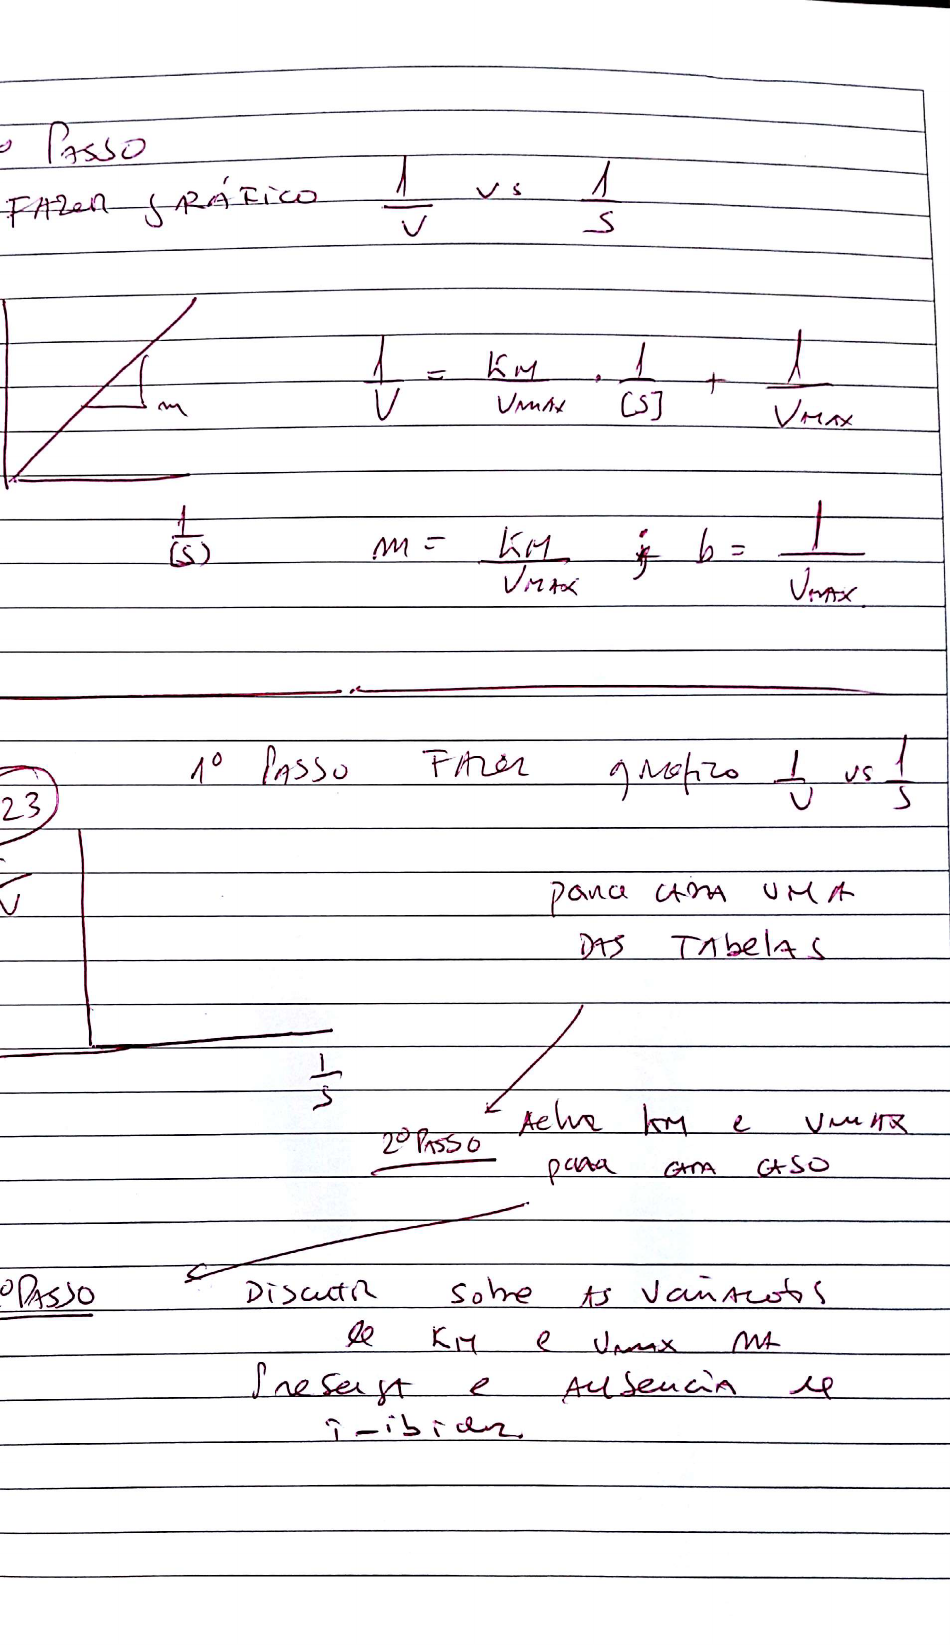 º PASSO
FAZER GRÁFICO 1/V vs 1/S
m
1/V = KM/VMAX . 1/[S] + 1/VMAX
1/(S)
m = KM/VMAX ; b = 1/VMAX
1º PASSO FAZER gráfico 1/V vs 1/S
23
V
para CADA UMA
DAS TABELAS
1/S
2º PASSO Achar KM e VMAX
para CADA CASO
º PASSO Discutir sobre AS variações
de KM e VMAX NA
Presença e AUSência de
inibidor